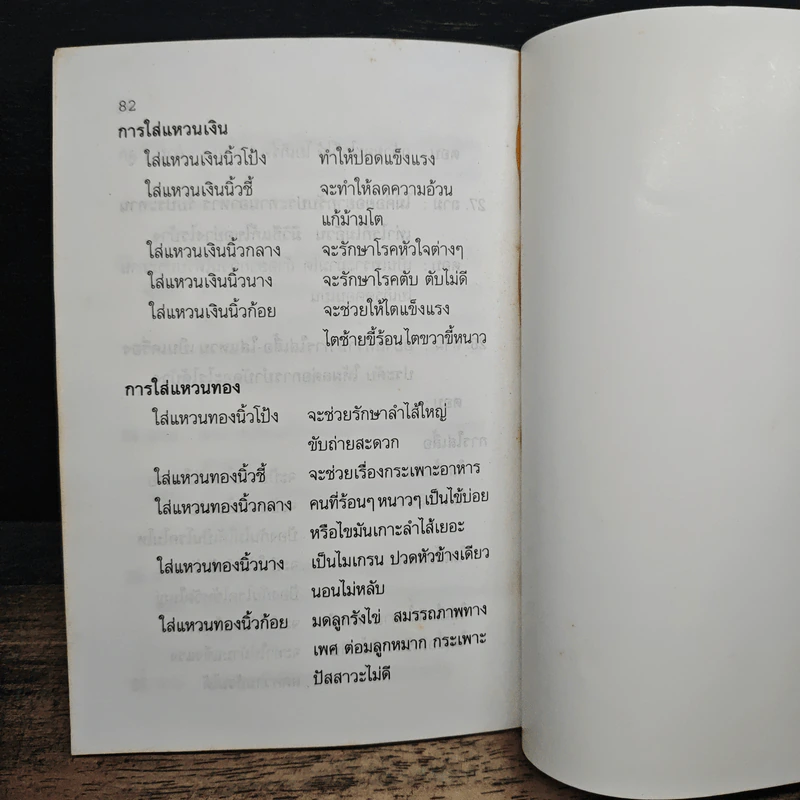 82
การใส่แหวนเงิน
ใส่แหวนเงินนิ้วโป้ง ทำให้ปอดแข็งแรง
ใส่แหวนเงินนิ้วชี้ จะทำให้ลดความอ้วน
แก้ม้ามโต
ใส่แหวนเงินนิ้วกลาง จะรักษาโรคหัวใจต่างๆ
ใส่แหวนเงินนิ้วนาง จะรักษาโรคตับ ตับไม่ดี
ใส่แหวนเงินนิ้วก้อย จะช่วยให้ไตแข็งแรง
ไตซ้ายขี้ร้อน ไตขวาขี้หนาว
การใส่แหวนทอง
ใส่แหวนทองนิ้วโป้ง จะช่วยรักษาลำไส้ใหญ่
ขับถ่ายสะดวก
ใส่แหวนทองนิ้วชี้ จะช่วยเรื่องกระเพาะอาหาร
ใส่แหวนทองนิ้วกลาง คนที่ร้อนๆ หนาวๆ เป็นไข้บ่อย
หรือไขมันเกาะลำไส้เยอะ
ใส่แหวนทองนิ้วนาง เป็นไมเกรน ปวดหัวข้างเดียว
นอนไม่หลับ
ใส่แหวนทองนิ้วก้อย มดลูกรังไข่ สมรรถภาพทาง
เพศ ต่อมลูกหมาก กระเพาะ
ปัสสาวะไม่ดี